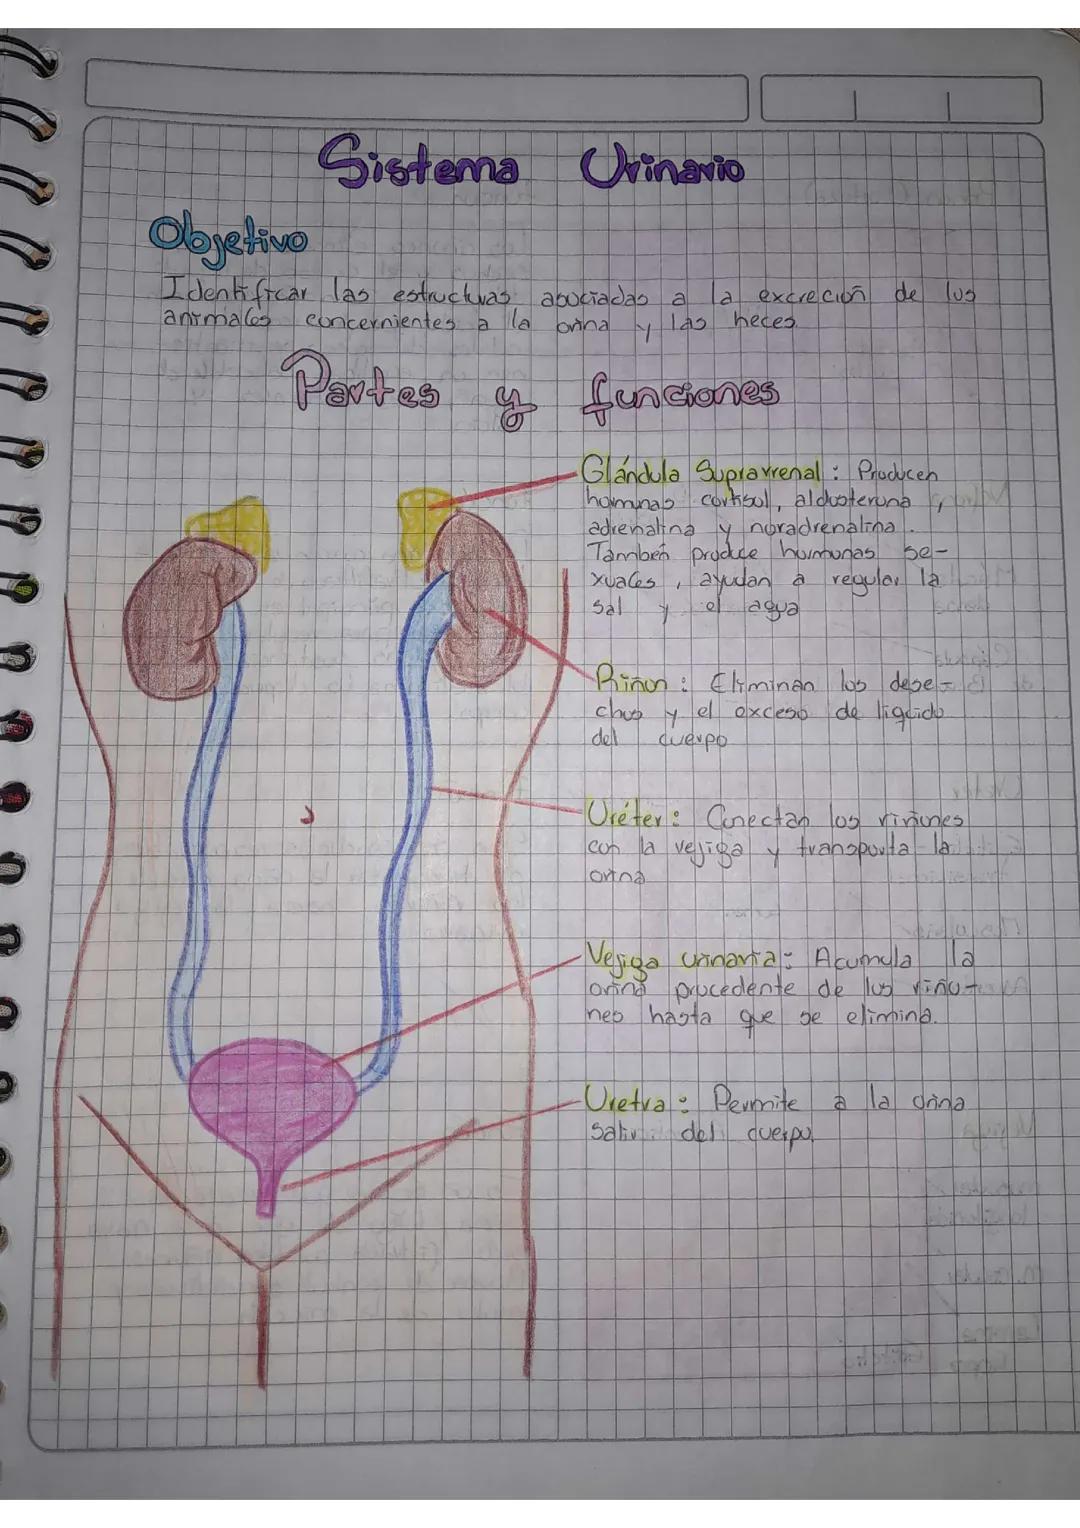 Sistema Urinario
Objetivo
Identificar las estructuras asociadas a la excreción de los
animales concernientes a la orina y las heces.
Partes y funciones
Glándula Suprarrenal: Producen
hormonas cortisol, aldosterona,
adrenalina y noradrenalina.
También produce hormonas se-
xuales, ayudan a regular la
sal y el agua
Riñon: Eliminan los dese-
chos y el exceso de liquido
del cuerpo
Uréter: Conectan los riñones
con la vejiga y transporta la
orina
Vejiga urinaria: Acumula la
orina procedente de los riño-
nes hasta que se elimina.
Uretra: Permite a la orina
salir del cuerpo.